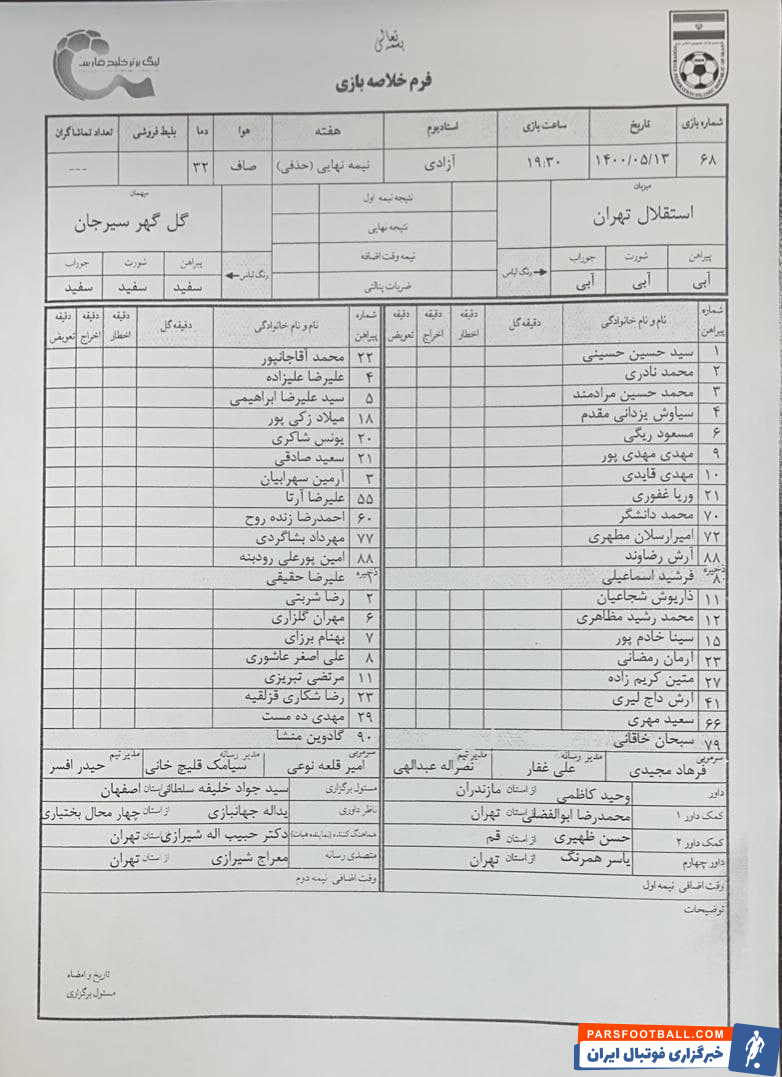 بسمه تعالی
لیگ برتر خلیج فارس
فرم خلاصه بازی
شماره بازی تاریخ ساعت بازی استادیوم هفته هوا دما بلیط فروشی تعداد تماشاگران
۶۸ ۱۴۰۰/۰۵/۱۳ ۱۹:۳۰ آزادی نیمه نهایی (حذفی) صاف ۳۲ ---
میزبان
استقلال تهران
پیراهن شورت جوراب
آبی آبی آبی
رنگ لباس
نتیجه نیمه اول
نتیجه نهایی
نیمه وقت اضافه
ضربات پنالتی
میهمان
گل گهر سیرجان
رنگ لباس
پیراهن شورت جوراب
سفید سفید سفید
شماره پیراهن نام و نام خانوادگی دقیقه گل دقیقه اخطار دقیقه اخراج دقیقه تعویض
۱ سید حسین حسینی
۲ محمد نادری
۳ محمد حسین مرادمند
۴ سیاوش یزدانی مقدم
۶ مسعود ریگی
۹ مهدی مهدی پور
۱۰ مهدی قایدی
۲۱ وریا غفوری
۷۰ محمد دانشگر
۷۲ امیرارسلان مطهری
۸۸ آرش رضاوند
ذخیره
۸ فرشید اسماعیلی
۱۱ داریوش شجاعیان
۱۲ محمد رشید مظاهری
۱۵ سینا خادم پور
۲۳ آرمان رمضانی
۲۷ متین کریم زاده
۴۱ آرش داج لیری
۶۶ سعید مهری
۷۹ سبحان خاقانی
شماره پیراهن نام و نام خانوادگی دقیقه گل دقیقه اخطار دقیقه اخراج دقیقه تعویض
۲۲ محمد آقاجانپور
۴ علیرضا علیزاده
۵ سید علیرضا ابراهیمی
۱۸ میلاد زکی پور
۲۰ یونس شاکری
۲۱ سعید صادقی
۳ آرمین سهرابیان
۵۵ علیرضا آرتا
۶۰ احمدرضا زنده روح
۷۷ مهرداد بشاگردی
۸۸ امین پورعلی رودبنه
ذخیره
۱ علیرضا حقیقی
۲ رضا شربتی
۶ مهران گلزاری
۷ بهنام برزای
۸ علی اصغر عاشوری
۱۱ مرتضی تبریزی
۲۳ رضا شکاری قزلقیه
۲۹ مهدی ده مست
۹۰ گادوین منشا
سرمربی فرهاد مجیدی مدیر رسانه علی غفار مدیر تیم نصراله عبدالهی
سرمربی امیر قلعه نوعی مدیر رسانه سیامک قلیچ خانی مدیر تیم حیدر افسر
داور وحید کاظمی از استان مازندران
کمک داور ۱ محمدرضا ابوالفضلی از استان تهران
کمک داور ۲ حسن ظهیری از استان قم
داور چهارم یاسر همرنگ از استان تهران
وقت اضافی نیمه اول
مسئول برگزاری سید جواد خلیفه سلطانی از استان اصفهان
ناظر داوری یداله جهانبازی از استان چهار محال بختیاری
هماهنگ کننده (نماینده هیات) دکتر حبیب اله شیرازی از استان تهران
متصدی رسانه معراج شیرازی از استان تهران
وقت اضافی نیمه دوم
توضیحات
تاریخ و امضاء
مسئول برگزاری
PARSFOOTBALL.COM
خبرگزاری فوتبال ایران